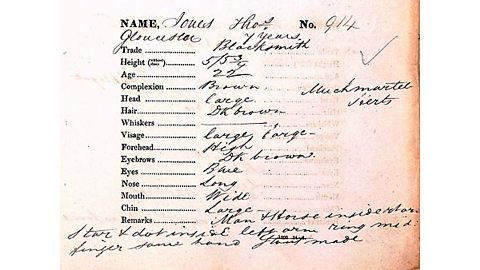 NAME, Jones Thos No. 914
Gloucester 7 years
Trade Blacksmith
Height 5/5 3/4
Age 22
Complexion Brown
Much
Head Large
Hair Dk brown
Whiskers
Visage large, large
Forehead High
Eyebrows Dk brown
Eyes
Nose Long
Mouth Wide
Chin Large
Remarks Man & Horse inside
Star & dot inside left arm ring mid
finger same hand Stout made